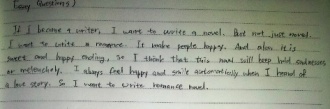 Essay Questions)
If I become a writer, I want to write a novel. But not just novel.
I want to write a romance. It make people happy. And also it is
sweet and happy ending, so I think that this novel will keep hold sadness
or melancholy. I always feel happy and smile automatically when I heard of
a love story. So I want to write romance novel.